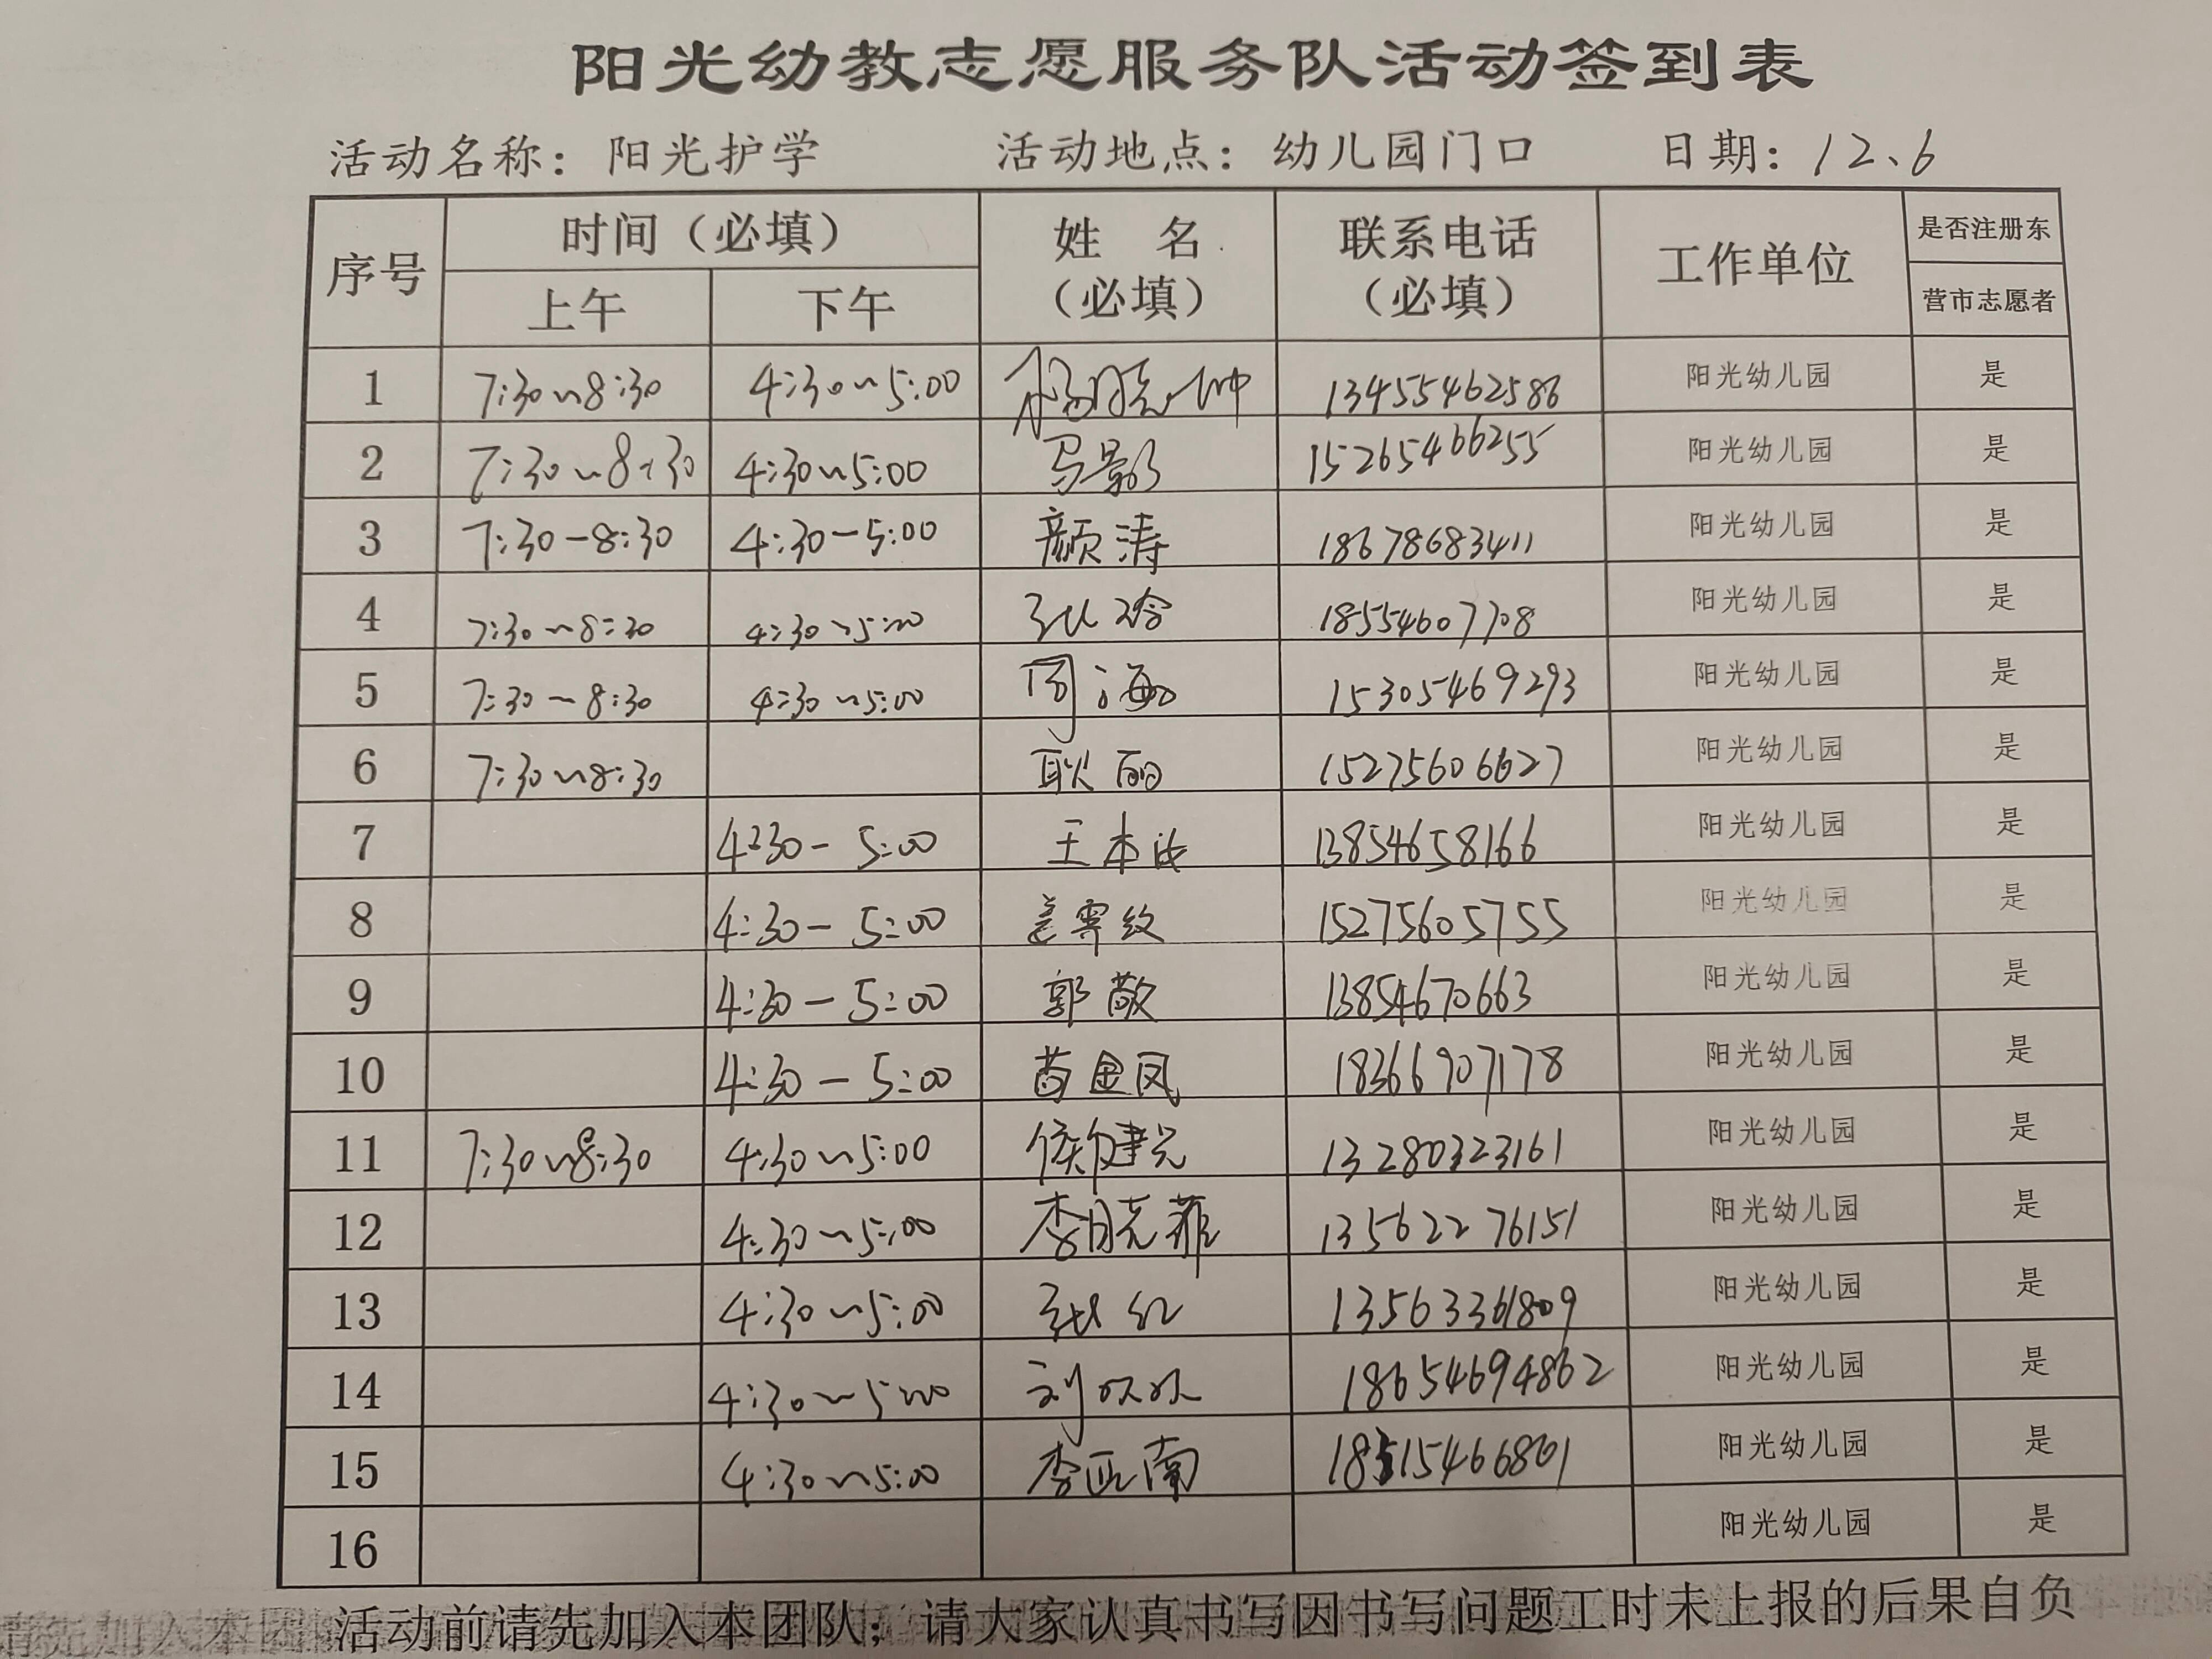 阳光幼教志愿服务队活动签到表
活动名称：阳光护学 活动地点：幼儿园门口 日期：12、6
序号 时间（必填） 姓 名（必填） 联系电话（必填） 工作单位 是否注册东营市志愿者
上午 下午
1 7:30~8:30 4:30~5:00 杨晓帅 13455462586 阳光幼儿园 是
2 7:30~8:30 4:30~5:00 马影 15265466255 阳光幼儿园 是
3 7:30-8:30 4:30-5:00 颜涛 18678683411 阳光幼儿园 是
4 7:30~8:30 4:30~5:00 18554607708 阳光幼儿园 是
5 7:30~8:30 4:30~5:00 周海 15305469293 阳光幼儿园 是
6 7:30~8:30 耿丽 15275606627 阳光幼儿园 是
7 4:30-5:00 王本 13854658166 阳光幼儿园 是
8 4:30-5:00 15275605755 阳光幼儿园 是
9 4:30-5:00 郭敬 13854670663 阳光幼儿园 是
10 4:30-5:00 苗金凤 18366907178 阳光幼儿园 是
11 7:30~8:30 4:30~5:00 侯健光 13280323161 阳光幼儿园 是
12 4:30~5:00 李晓菲 13562276151 阳光幼儿园 是
13 4:30~5:00 张红 13563361809 阳光幼儿园 是
14 4:30~5:00 刘欣欣 18654694862 阳光幼儿园 是
15 4:30~5:00 李亚南 阳光幼儿园 是
16 阳光幼儿园 是
活动前请先加入本团队；请大家认真书写因书写问题工时未上报的后果自负